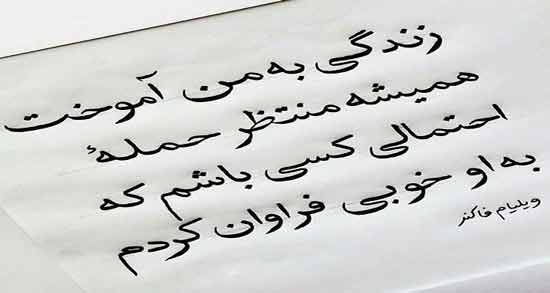 زندگی به من آموخت
همیشه منتظر حملهٔ
احتمالی کسی باشم که
به او خوبی فراوان کردم
ویلیام فاکنر